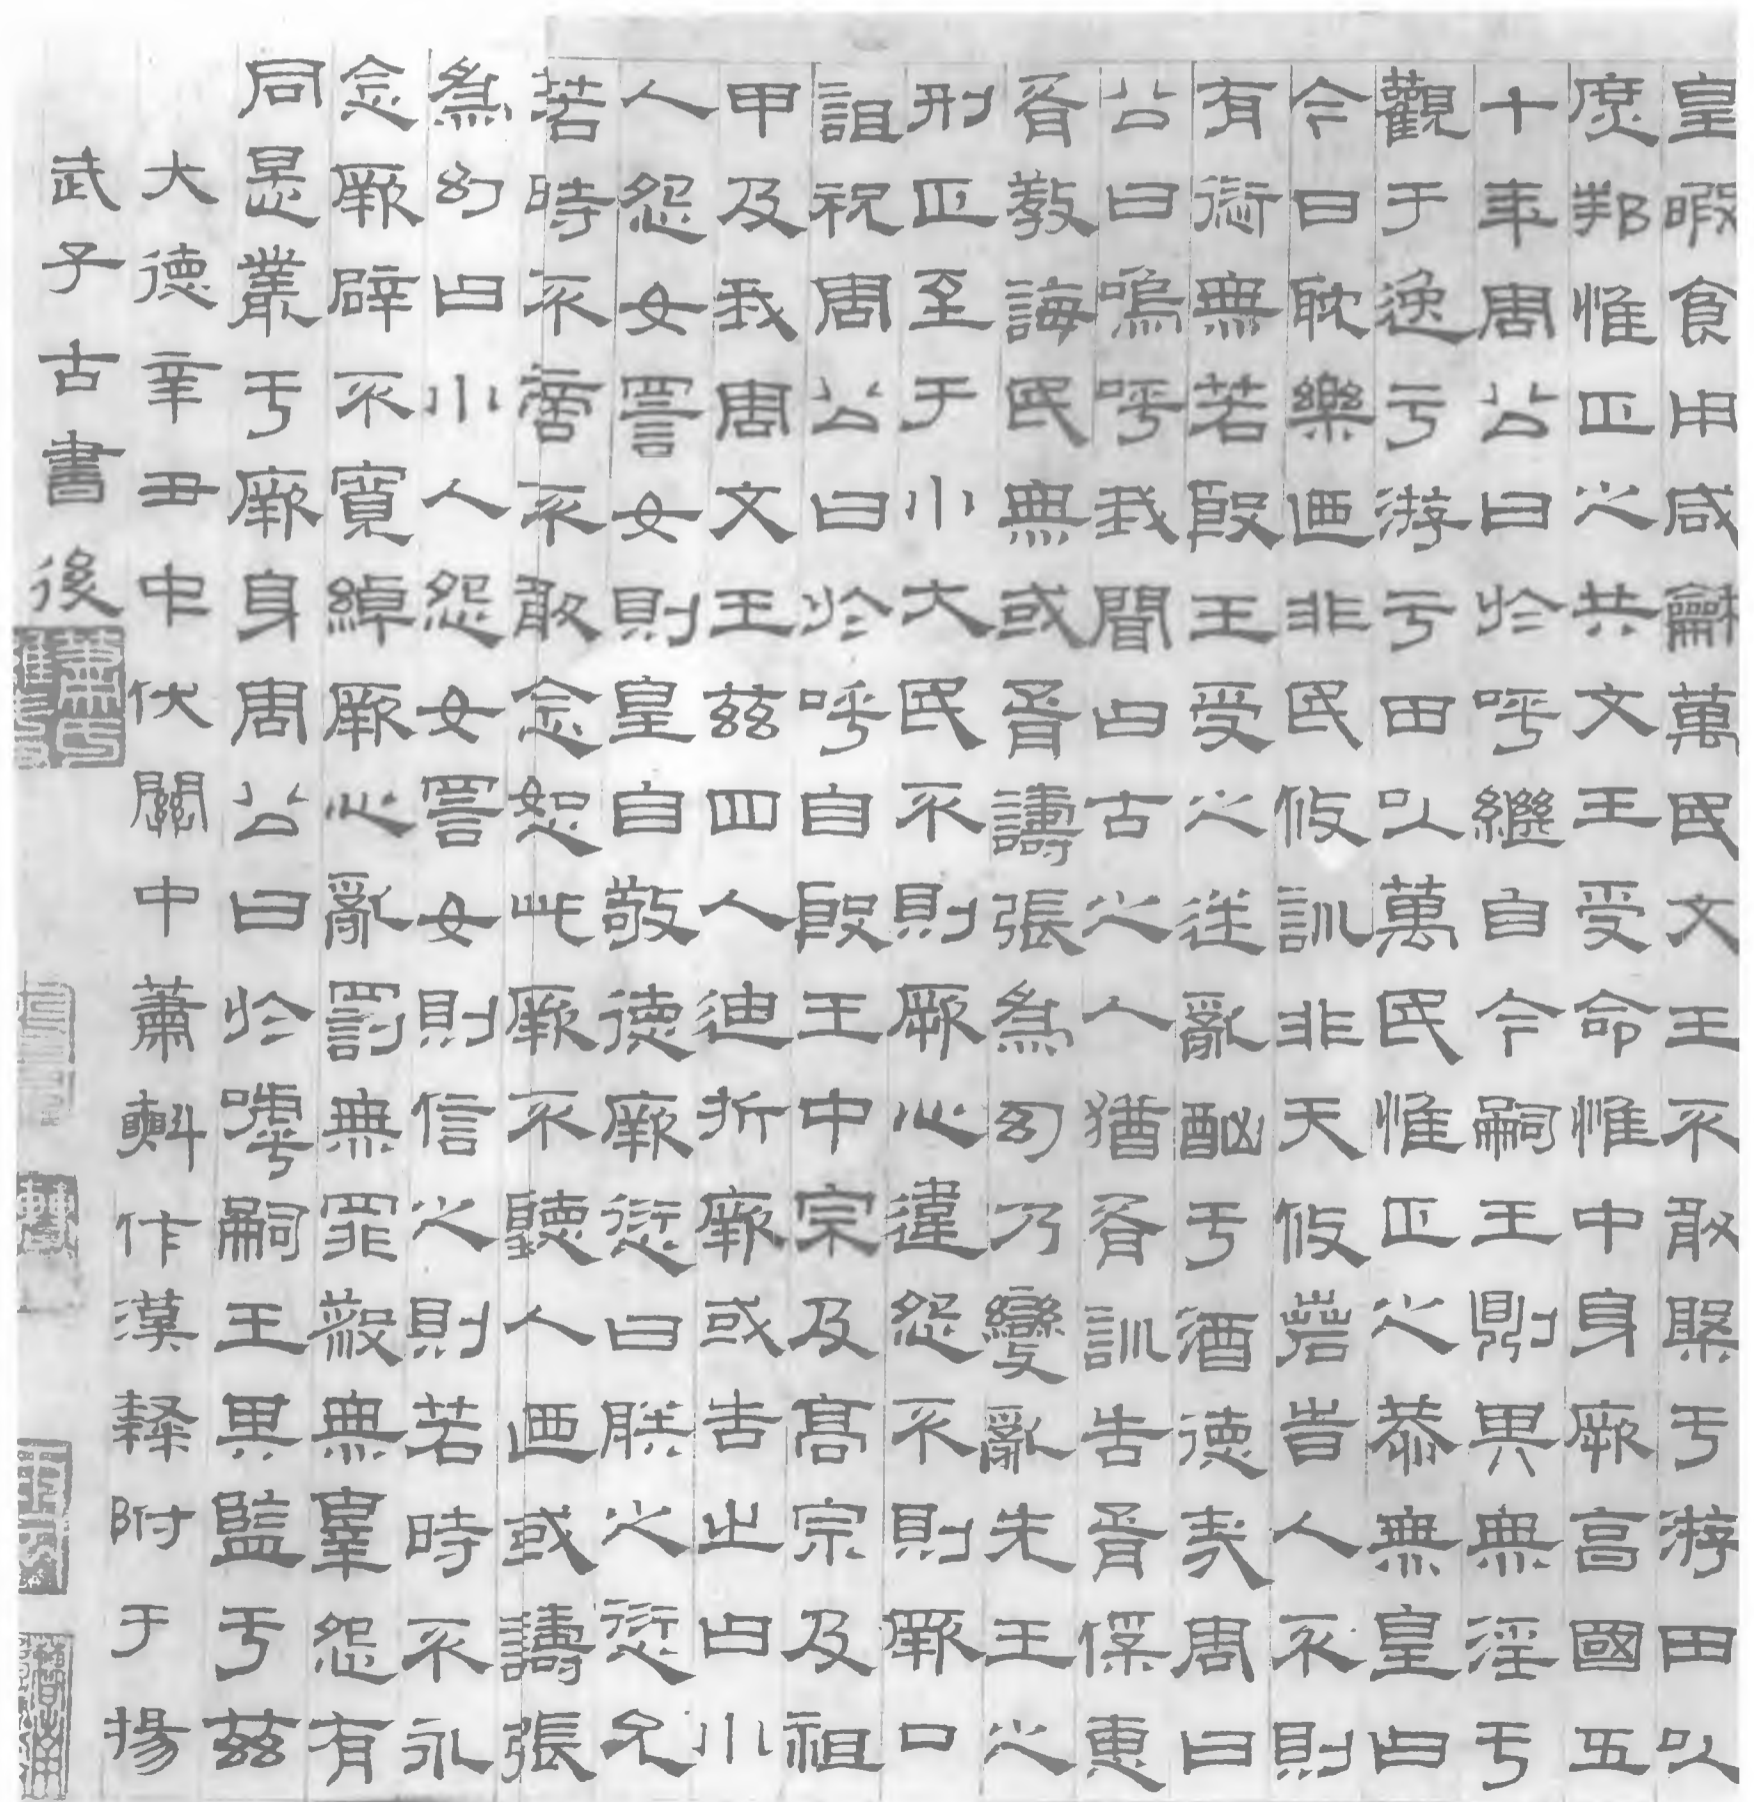 皇暇食用咸龢萬國文王不敢槃于游田以
庶邦惟正之共文王受命惟中身厥亯國五
十年周公曰於呼繼自今嗣王則其無淫于
觀于逸亏游亏田以萬民惟正之恭無皇曰
今日耽樂迺非民攸訓非天攸若旹人不則
有愆無若殷王受之迷亂酗于酒德哉周曰
公曰嗚呼我聞曰古之人猶胥訓告胥保惠
胥教誨民無或胥譸張為幻乃變亂先王之
刑正至于小大民不則厥心違怨不則厥口
詛祝周公曰於呼自殷王中宗及高宗及祖
甲及我周文王茲四人迪折厥或告之曰小
人怨女詈女則皇自敬德厥愆曰朕之愆允
若時不啻不敢念恕此厥不聽人迺或譸張
為幻曰小人怨女詈女則信之則若時不永
念厥辟不寬綽厥心亂罰無罪殺無辜怨有
同是叢于厥身周公曰於嘑嗣王其監于茲
大德辛丑中伏關中蕭𣂏作漢隸附于揚
武子古書後